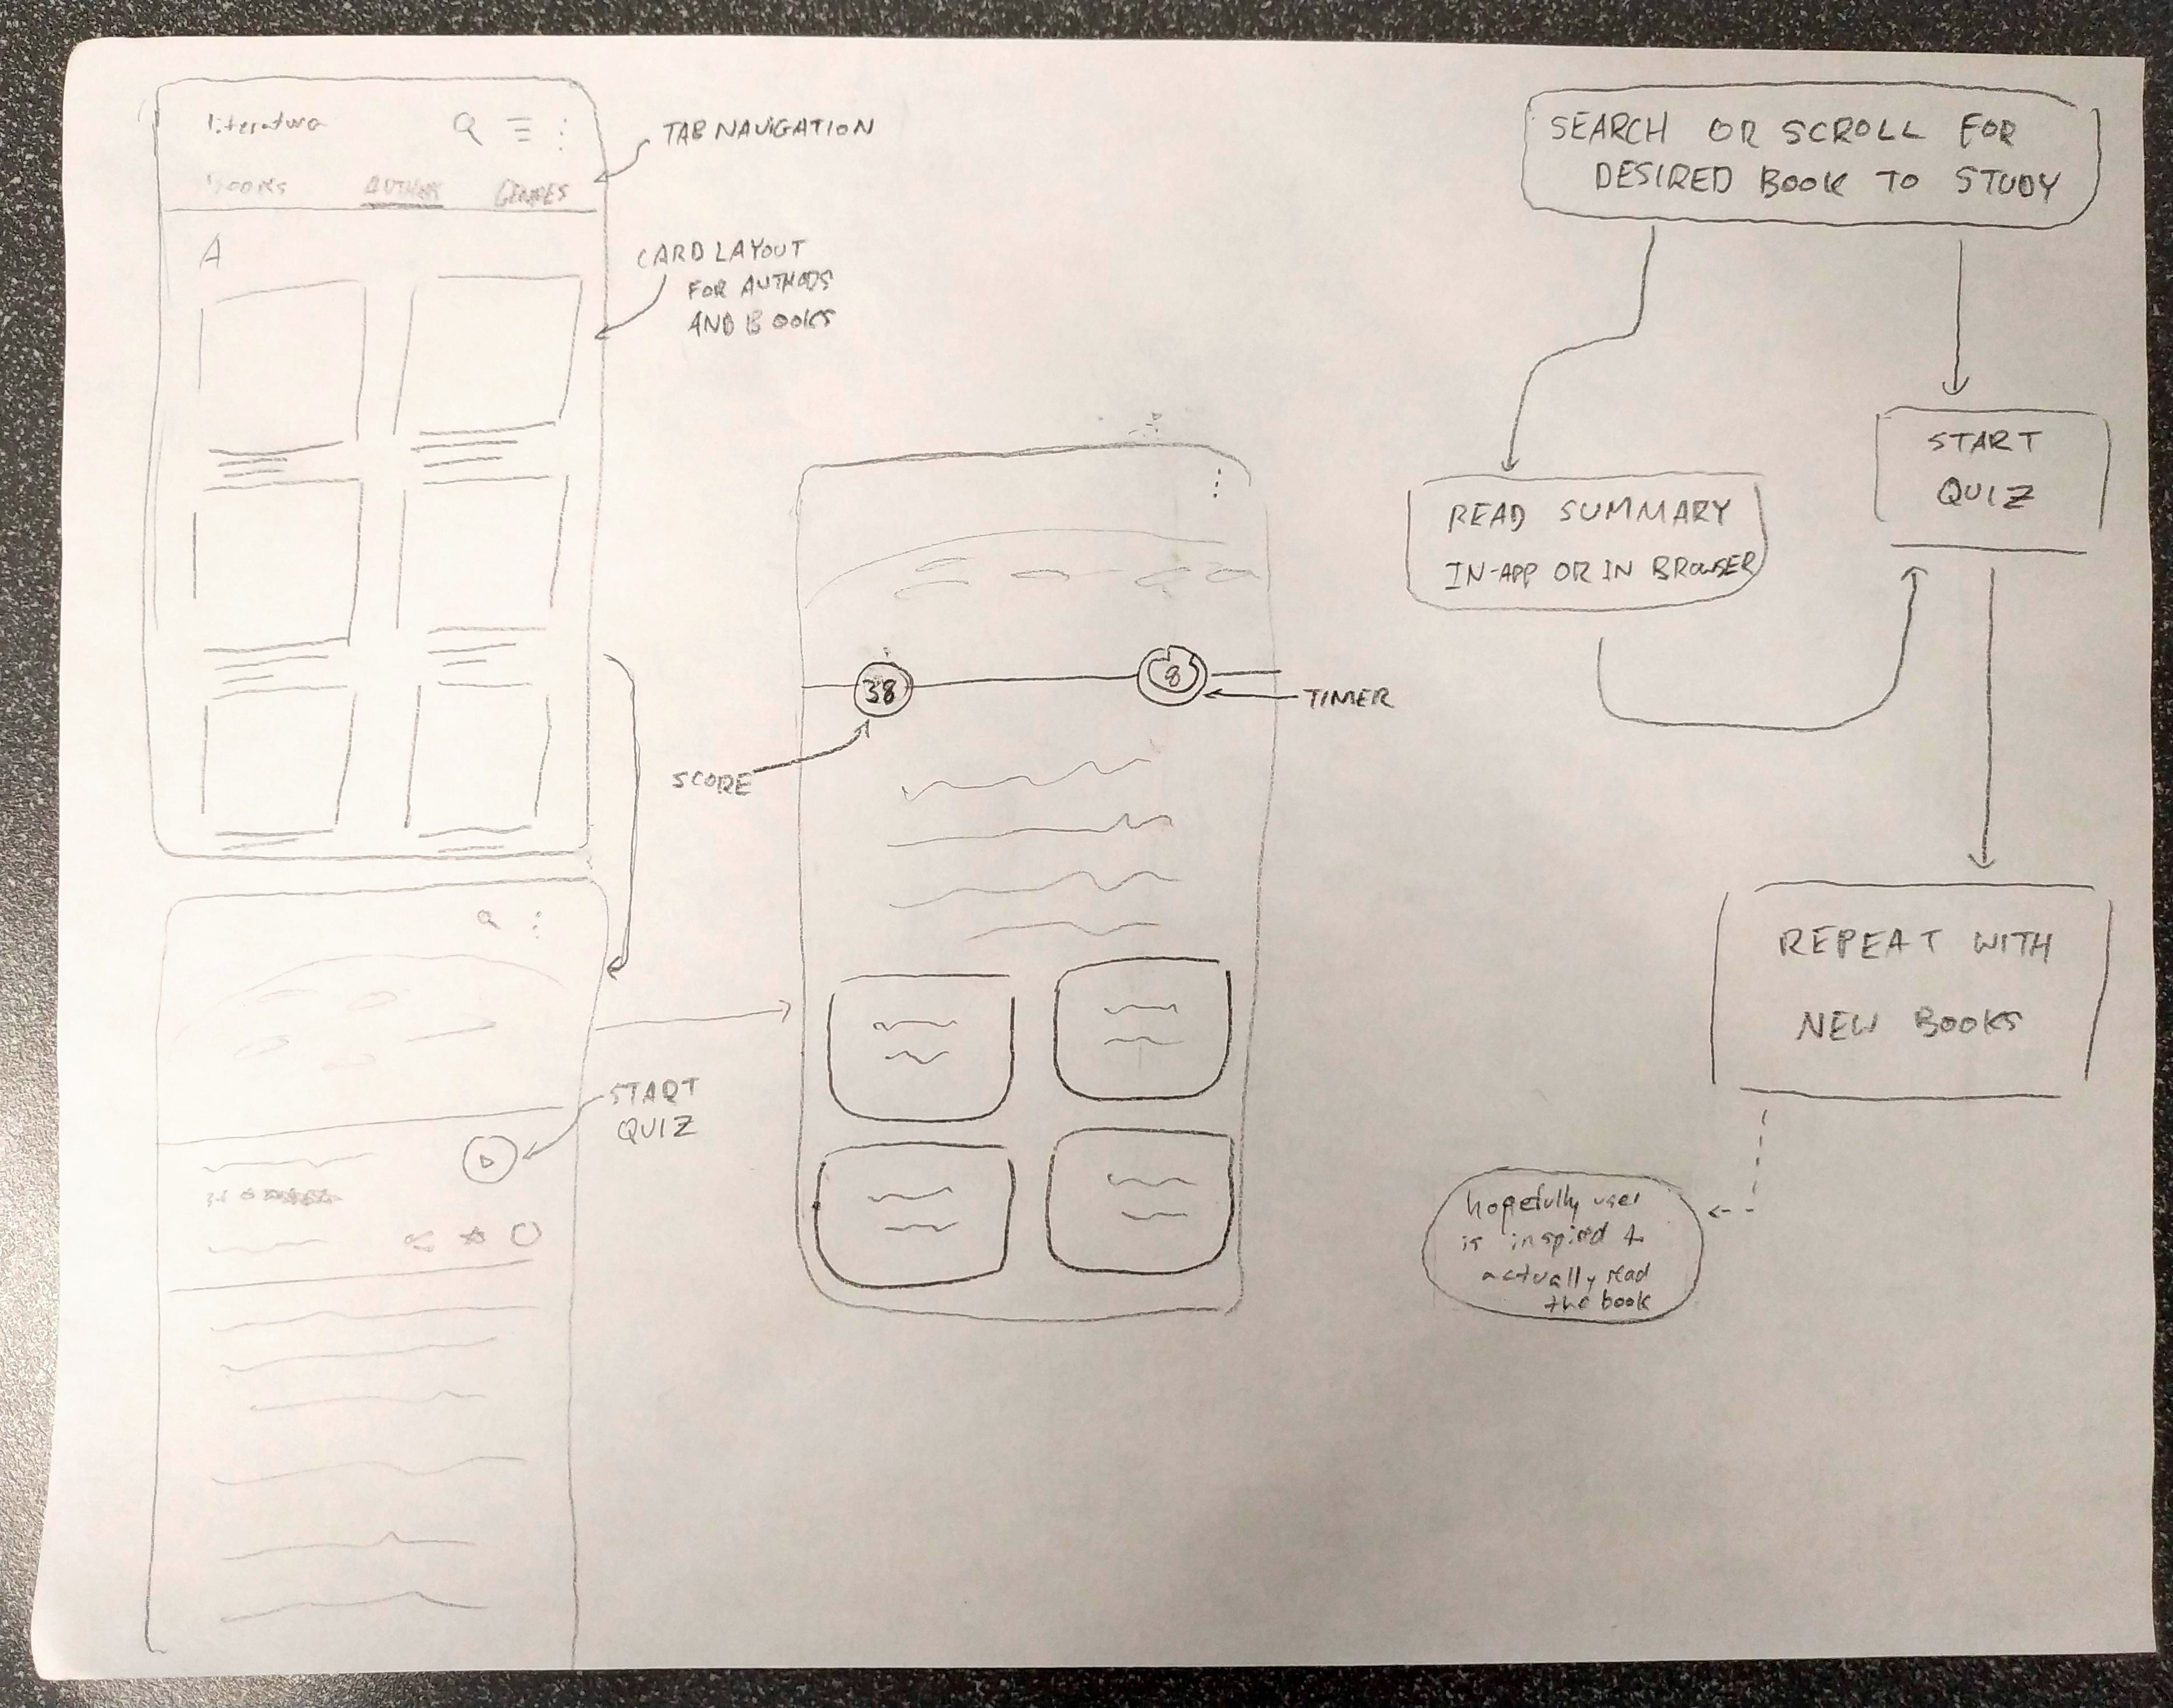 literatura
BOOKS AUTHORS GENRES
A
TAB NAVIGATION
CARD LAYOUT
FOR AUTHORS
AND BOOKS
START
QUIZ
38
8
SCORE
TIMER
SEARCH OR SCROLL FOR
DESIRED BOOK TO STUDY
READ SUMMARY
IN-APP OR IN BROWSER
START
QUIZ
REPEAT WITH
NEW BOOKS
hopefully user
is inspired to
actually read
the book